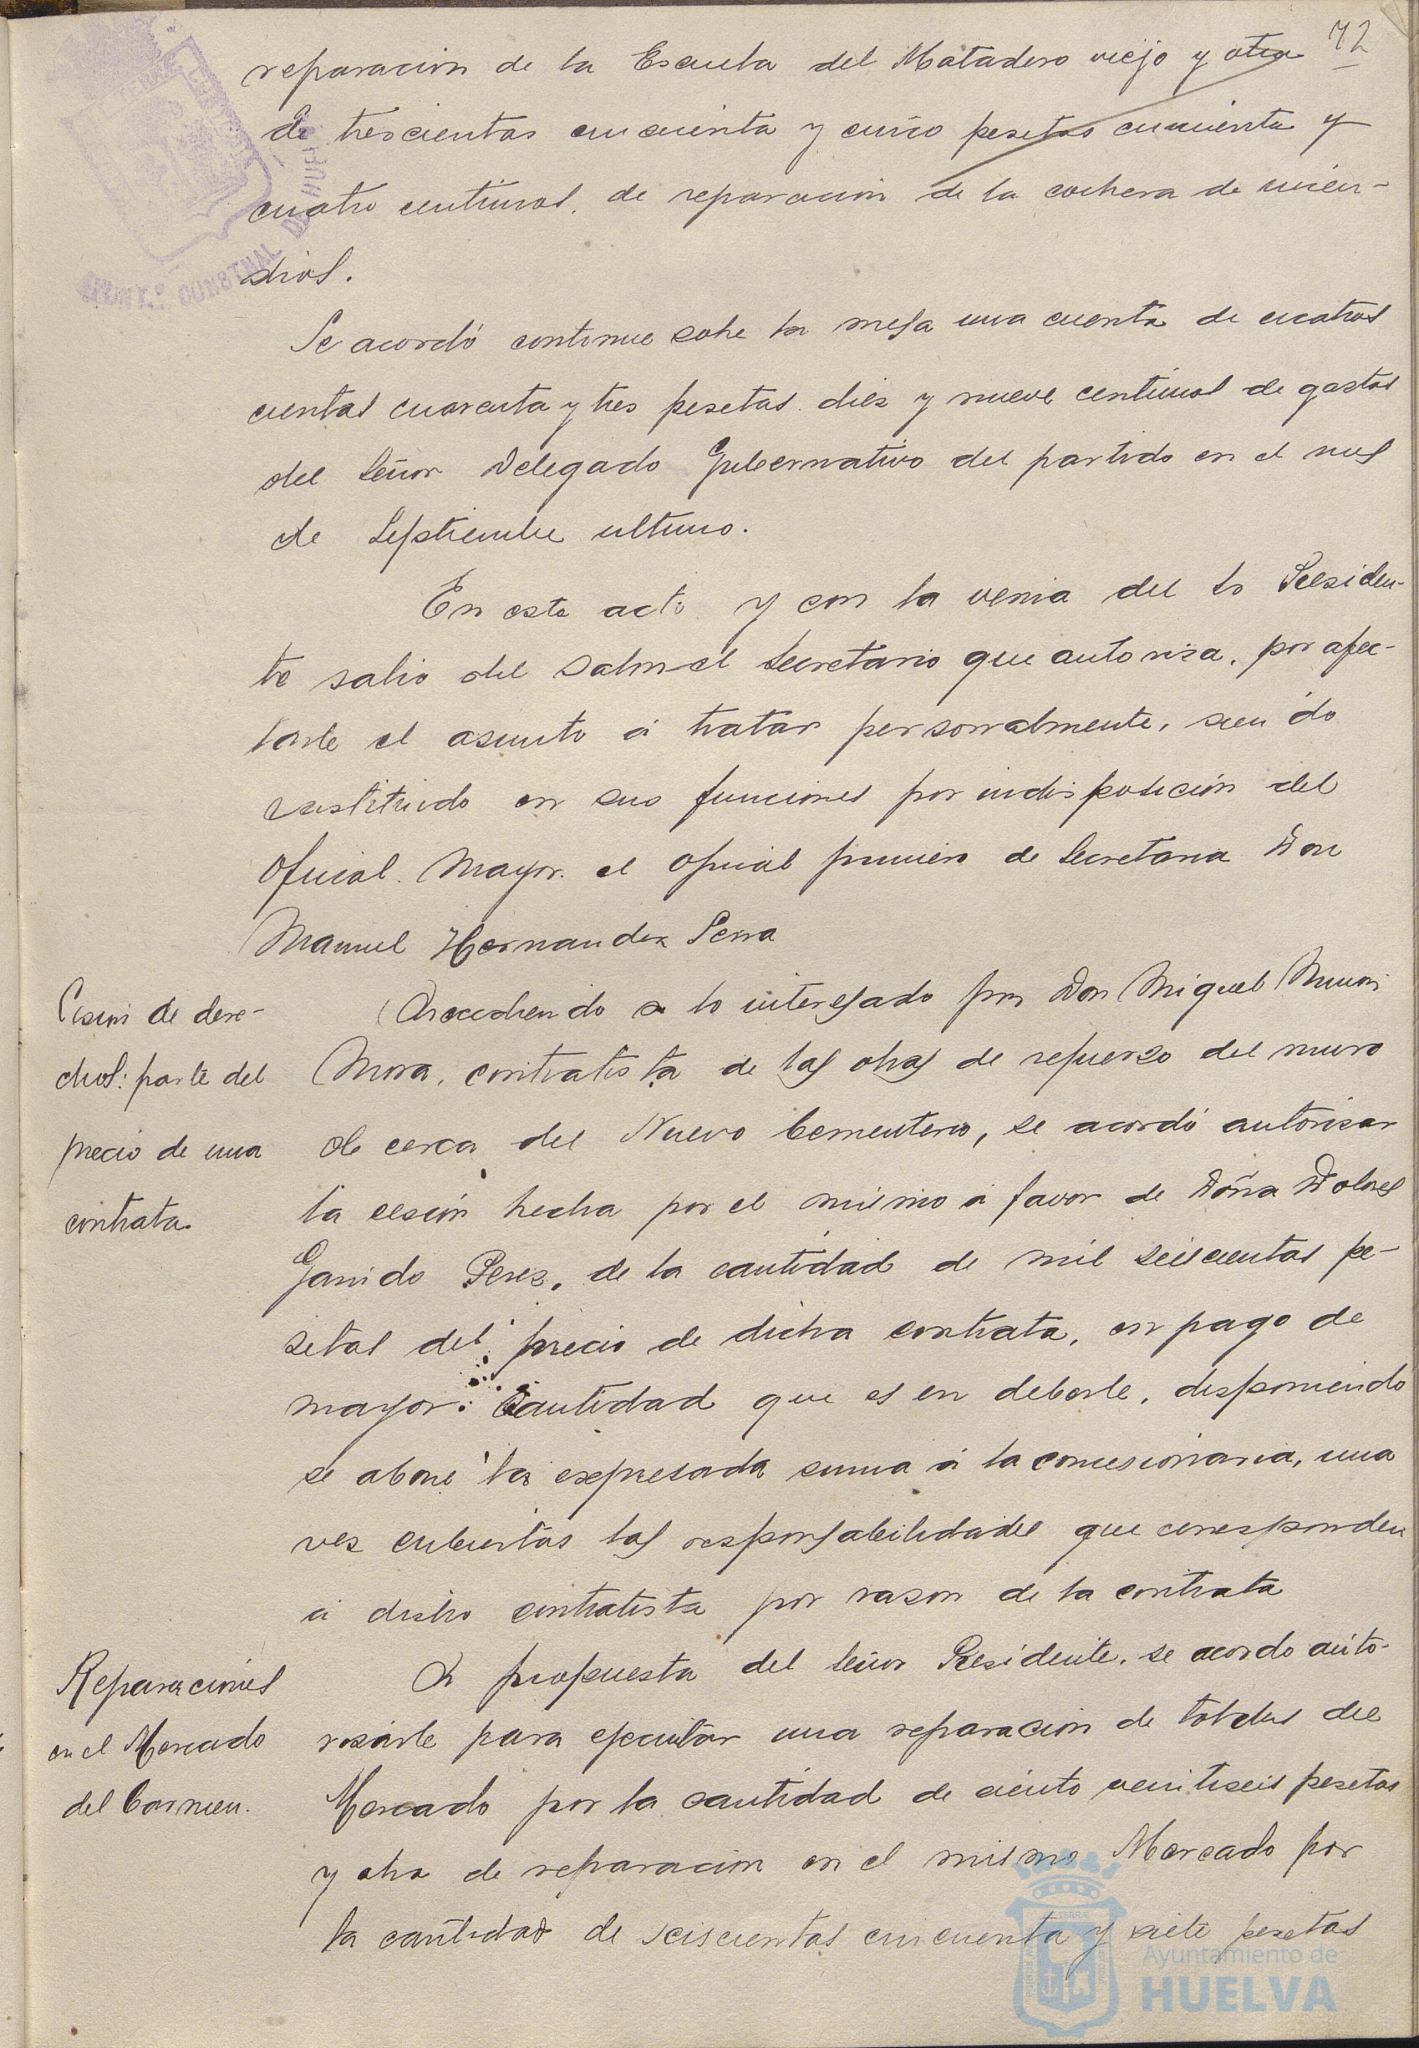 72
reparacion de la Escuela del Matadero viejo y otra
de trescientas cincuenta y cinco pesetas cincuenta y
cuatro centimos, de reparacion de la cochera de incen-
dios.
Se acordó continue sobre la mesa una cuenta de cuatros
cientas cuarenta y tres pesetas diez y nueve centimos de gastos
del Señor Delegado Gubernativo del partido en el mes
de Septiembre ultimo.
En este acto y con la venia del Sr Presiden-
te salio del Salon el Secretario que autoriza, por afec-
tarle el asunto á tratar personalmente, siendo
sustituido en sus funciones por indisposición del
Oficial Mayor el oficial primero de Secretaria Don
Manuel Hernandez Serra
Cesión de dere-
chos: parte del
precio de una
contrata.
Accediendo a lo interesado por Don Miguel
Mora, contratista de las obras de refuerzo del muro
de cerca del Nuevo Cementerio, se acordó autorizar
la cesión hecha por el mismo á favor de Doña Dolores
Garrido Perez, de la cantidad de mil seiscientas pe-
setas del precio de dicha contrata, en pago de
mayor cantidad que es en deberle, disponiendo
se abone la expresada suma á la concesionaria, una
vez cubiertas las responsabilidades que corresponden
á dicho contratista por razon de la contrata
Reparaciones
en el Mercado
del Carmen.
A propuesta del Señor Presidente, se acordo auto-
rizarle para ejecutar una reparacion de toldos del
Mercado por la cantidad de ciento veintiseis pesetas
y otra de reparacion en el mismo Mercado por
la cantidad de seiscientas cincuenta y siete pesetas
AYUNT.º CONSTNAL DE HUELVA
Ayuntamiento de
HUELVA